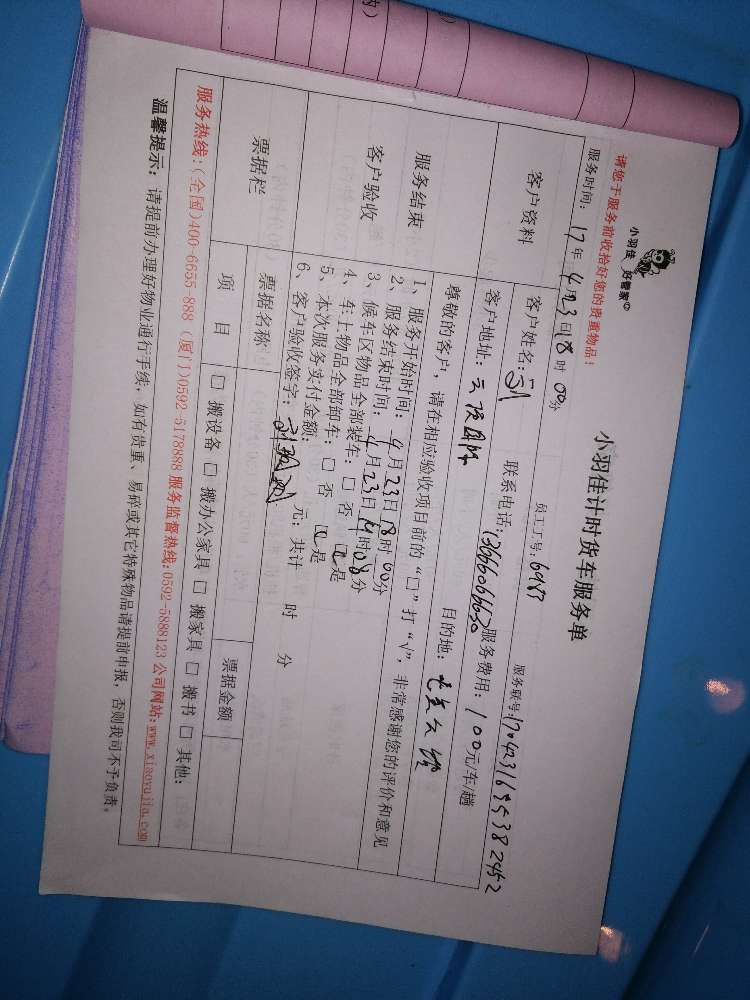 小羽佳 好管家
小羽佳计时货车服务单
请您于服务前收拾好您的贵重物品!
服务时间: 17年4月23日18时00分 员工工号: 6983 服务联号:
客户资料
客户姓名: 刘 联系电话: 服务费用: 100元/车/趟
客户地址: 目的地:
服务结束
客户验收
尊敬的客户, 请在相应验收项目前的“□”打“√”, 非常感谢您的评价和意见
1、服务开始时间: 4月23日18时00分
2、服务结束时间: 4月23日 时08分
3、候车区物品全部装车: □ 否 ☑ 是
4、车上物品全部卸车: □ 否 ☑ 是
5、本次服务实付金额: 元; 共计 时 分
6、客户验收签字:
票据栏
票据名称 票据金额
项 目 □ 搬设备 □ 搬办公家具 □ 搬家具 □ 搬书 □ 其他:
服务热线:(全国)400-6655-888 (厦门)0592-5178888 服务监督热线:0592-5888123 公司网站:www.xiaoyujia.com
温馨提示: 请提前办理好物业通行手续, 如有贵重、易碎或其它特殊物品请提前申报, 否则我司不予负责。